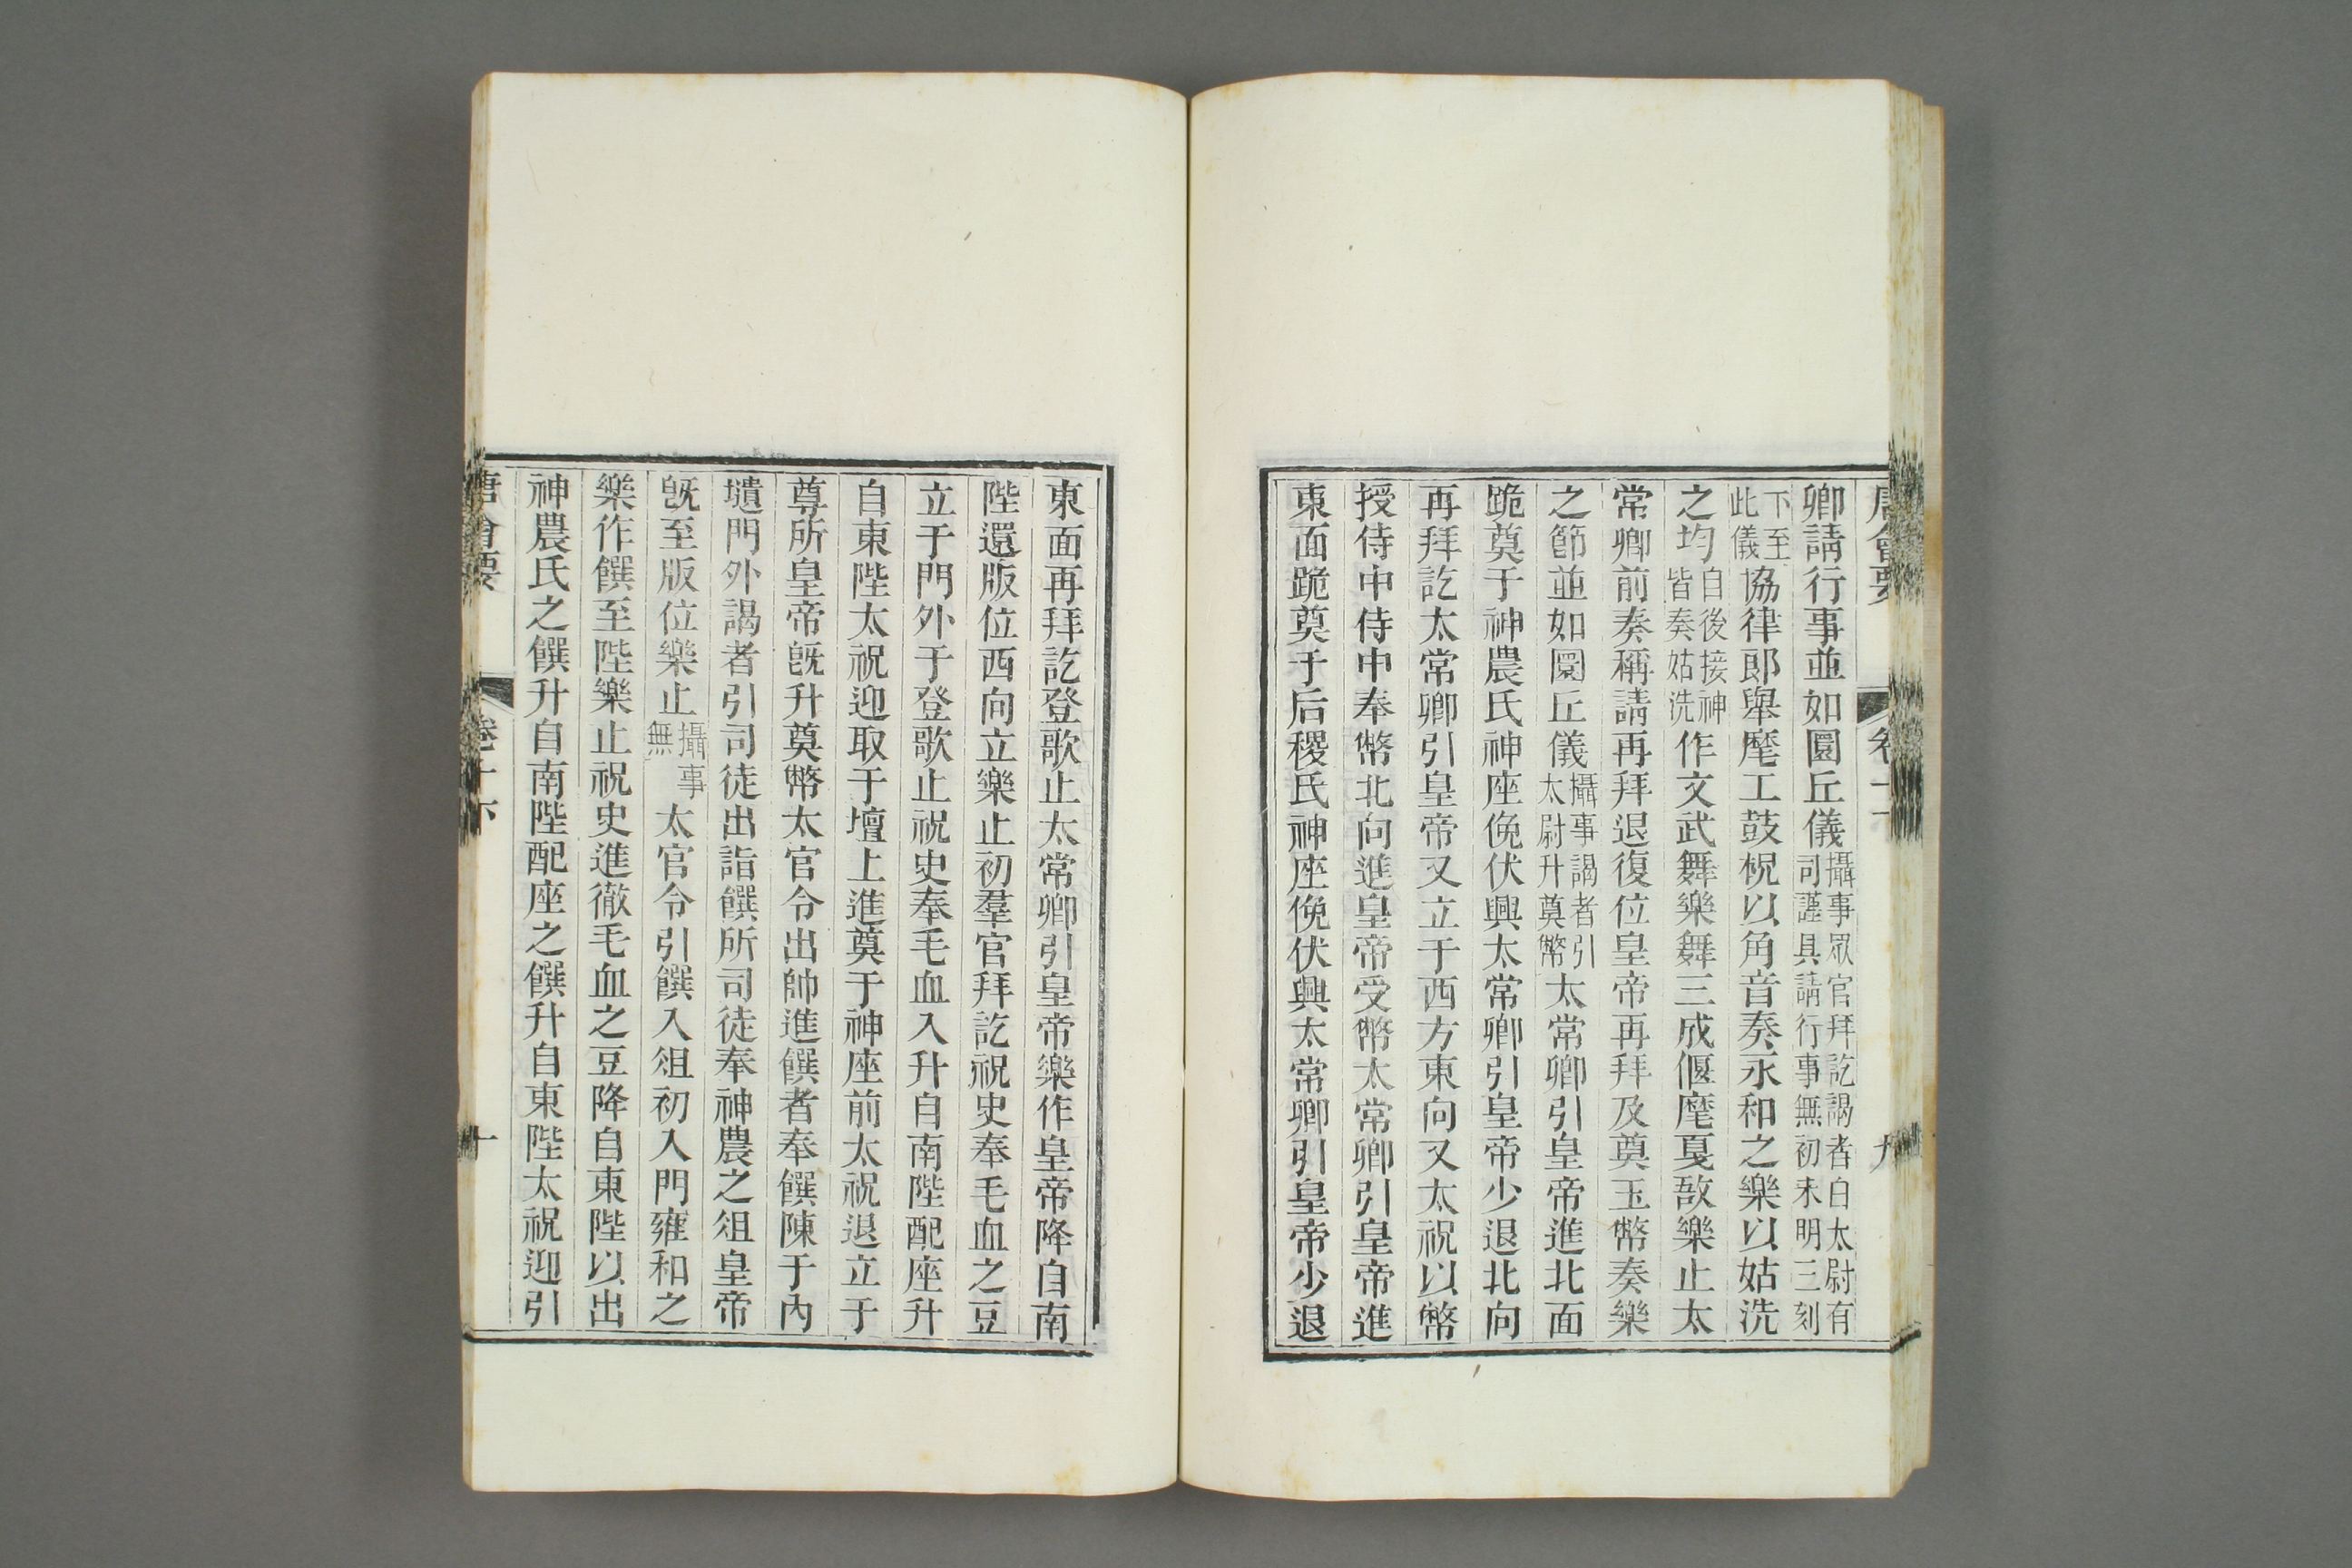 卿請行事並如圜丘儀攝事眾官拜訖謁者白太尉有司謹具請行事無初未明三刻
下至此儀協律郎舉麾工鼓柷以角音奏永和之樂以姑洗
之均自後接神皆奏姑洗作文武舞樂舞三成偃麾戛敔樂止太
常卿前奏稱請再拜退復位皇帝再拜及奠玉幣奏樂
之節並如圜丘儀攝事謁者引太尉升奠幣太常卿引皇帝進北面
跪奠于神農氏神座俛伏興太常卿引皇帝少退北向
再拜訖太常卿引皇帝又立于西方東向又太祝以幣
授侍中侍中奉幣北向進皇帝受幣太常卿引皇帝進
東面跪奠于后稷氏神座俛伏興太常卿引皇帝少退
東面再拜訖登歌止太常卿引皇帝樂作皇帝降自南
陛還版位西向立樂止初羣官拜訖祝史奉毛血之豆
立于門外于登歌止祝史奉毛血入升自南陛配座升
自東陛太祝迎取于壇上進奠于神座前太祝退立于
尊所皇帝既升奠幣太官令出帥進饌者奉饌陳于內
壝門外謁者引司徒出詣饌所司徒奉神農之俎皇帝
既至版位樂止攝事無太官令引饌入俎初入門雍和之
樂作饌至陛樂止祝史進徹毛血之豆降自東陛以出
神農氏之饌升自南陛配座之饌升自東陛太祝迎引
唐會要
十